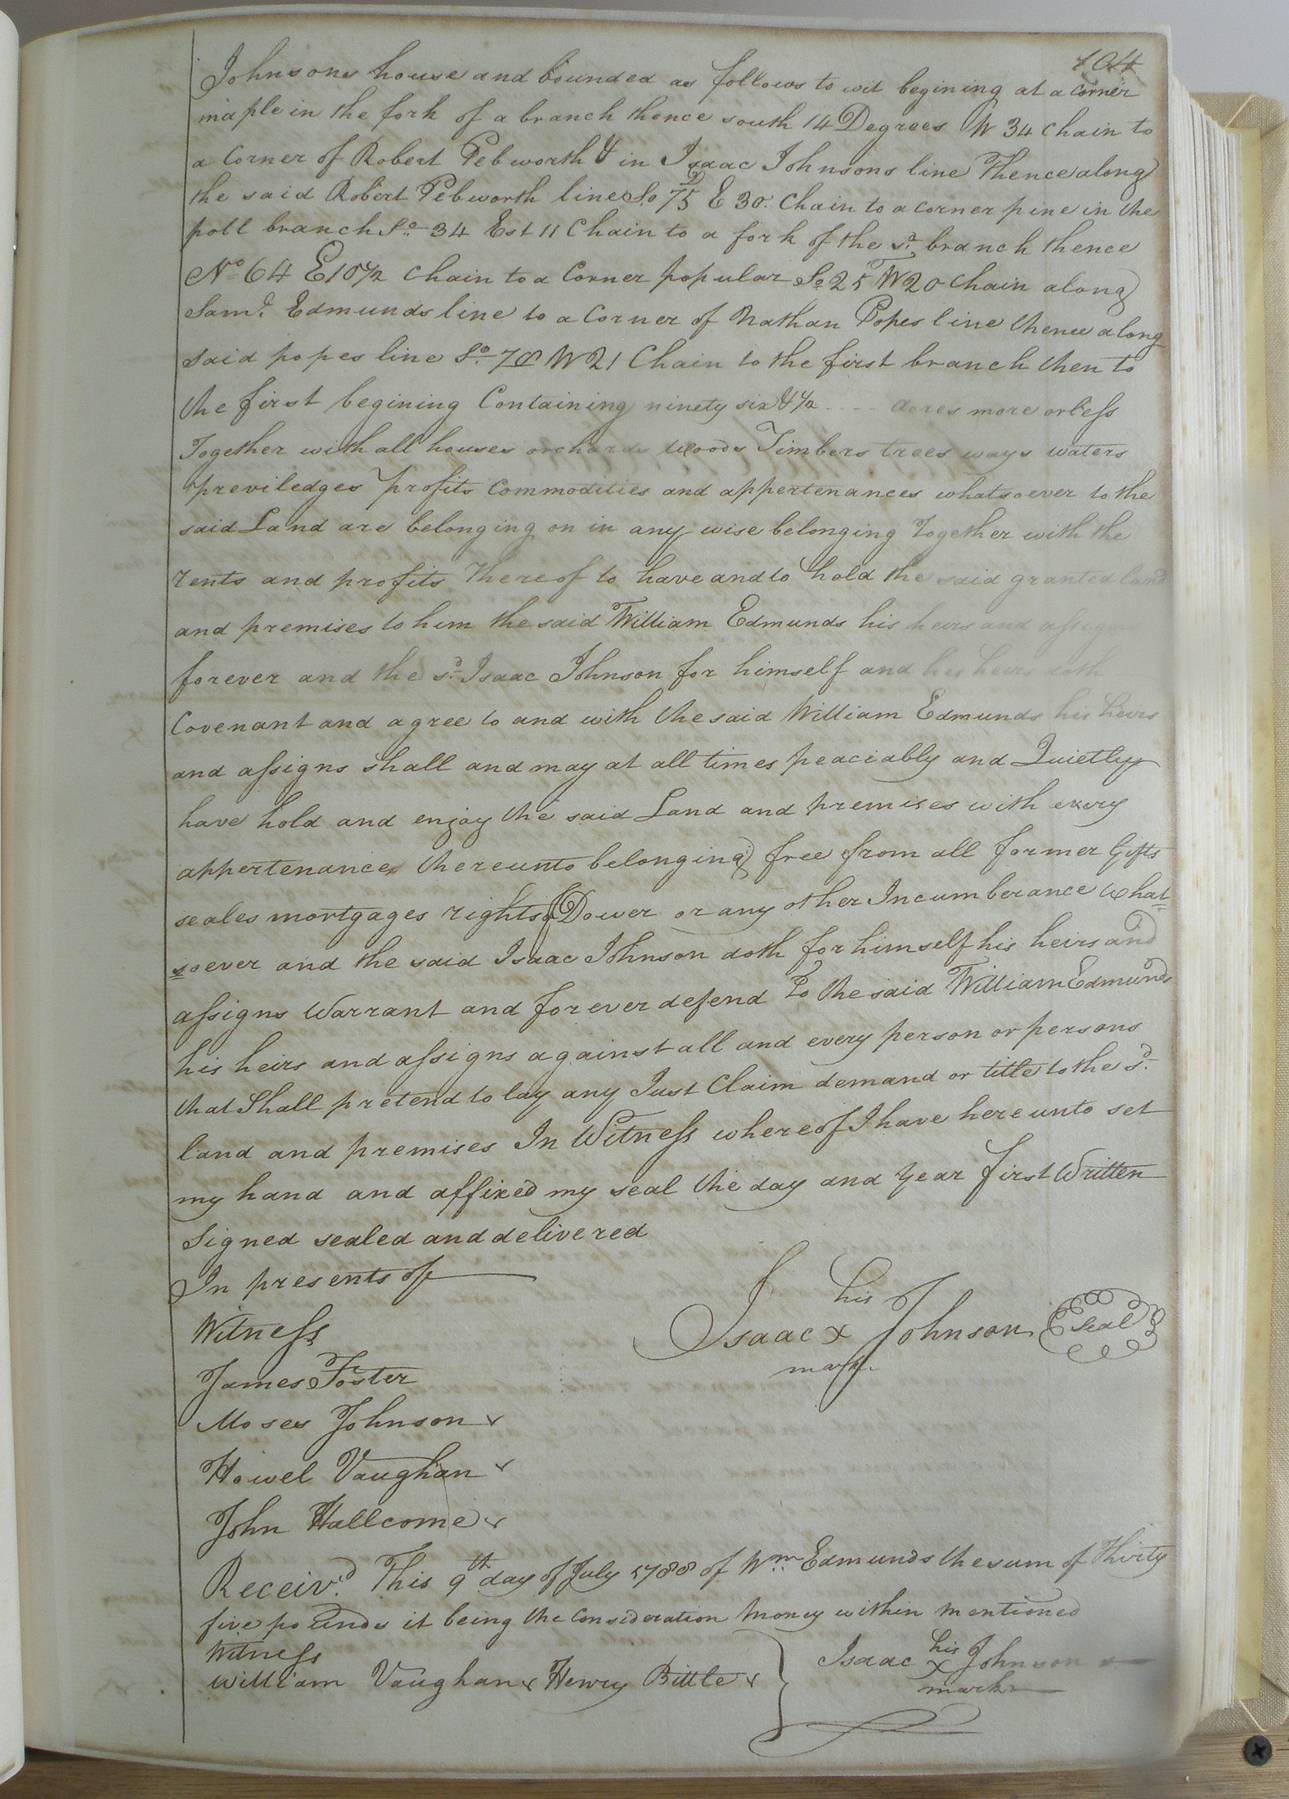 104
Johnsons house and bounded as follows to wit begining at a Corner
maple in the fork of a branch thence south 14 Degrees W 34 chain to
a Corner of Robert Pebworth & in Isaac Johnsons line Thence along
the said Robert Pebworth line So 75 E 30 Chain to a corner pine in the
poll branch So 34 Est 11 Chain to a fork of the sd. branch thence
No 64 E 10 1/2 chain to a Corner popular So 25 W 20 Chain along
Saml. Edmunds line to a Corner of Nathan Popes line thence along
said popes line So 78 W 21 Chain to the first branch then to
the first begining Containing ninety six & 1/2 .... acres more or less
Together with all houses orchards woods Timbers trees ways waters
previledges profits Commodities and appertenances whatsoever to the
said Land are belonging on in any wise belonging Together with the
rents and profits Thereof to have and to hold the said granted land
and premises to him the said William Edmunds his heirs and assigns
forever and the sd. Isaac Johnson for himself and his heirs doth
Covenant and agree to and with the said William Edmunds his heirs
and assigns shall and may at all times peaciably and Quietly
have hold and enjoy the said Land and premises with every
appertenance thereunto belonging free from all former Gifts
seales mortgages rights of Dower or any other Incumberance what=
soever and the said Isaac Johnson doth for himself his heirs and
assigns Warrant and forever defend To the said William Edmunds
his heirs and assigns against all and every person or persons
that Shall pretend to lay any Just Claim demand or title to the sd.
land and premises In Witness whereof I have hereunto set
my hand and affixed my seal the day and year first Written
Signed sealed and delivered
In presents of
Witness
Isaac his x mark Johnson Seal
James Foster
Moses Johnson
Howel Vaughan
John Hallcome
Receiv'd. This 9th day of July 1788 of Wm. Edmunds the sum of thirty
five pounds it being the Consideration money within mentioned
Witness
William Vaughan Henry Bittle } Isaac his x mark Johnson